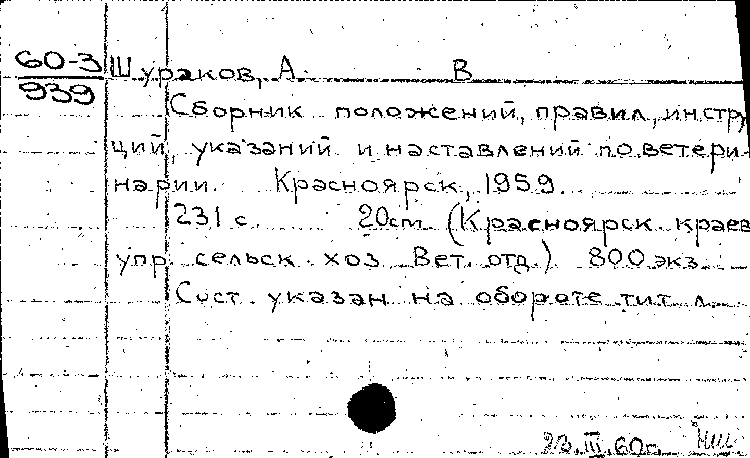 60-3
939
Шураков, А. В
Сборник положений, правил, инстру
ций, указаний и наставлений по ветери-
нарии. Красноярск, 1959.
231 с. 20cm. (Красноярск. краев
упр. сельск. хоз. Вет. отд.) 800 экз.
Сост. указан на обороте тит. л.
23.III.60г.